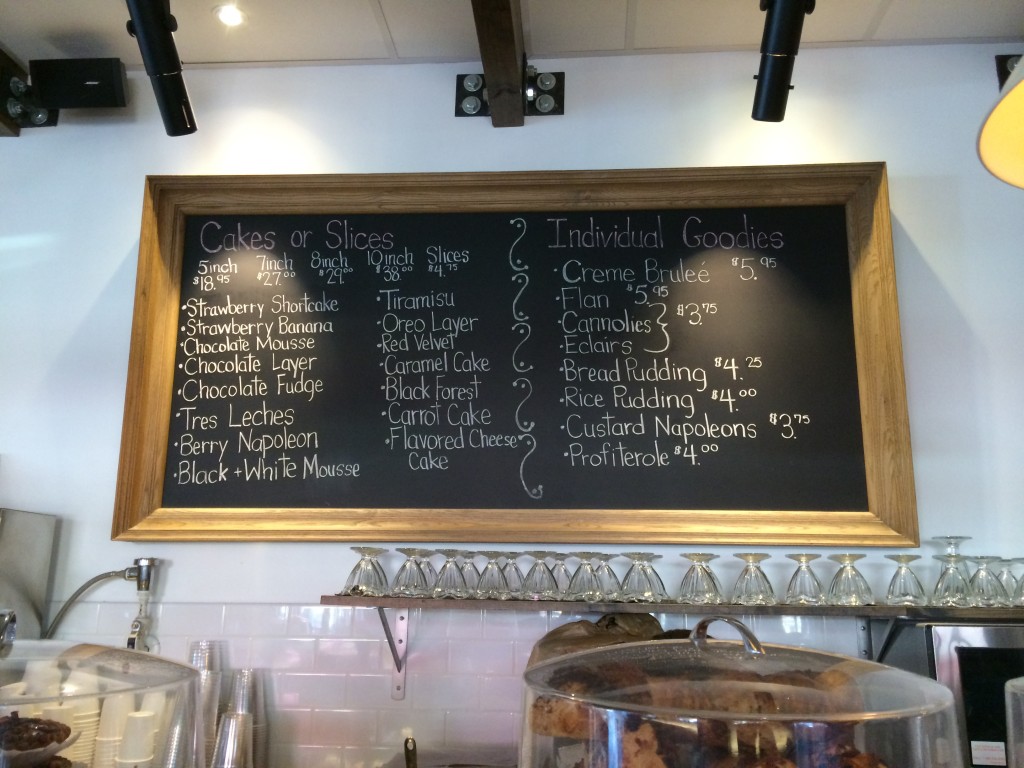 Cakes or Slices
5inch 7inch 8inch 10inch Slices
$18.95 $27.00 $29.00 $38.00 $4.75
•Strawberry Shortcake
•Strawberry Banana
•Chocolate Mousse
•Chocolate Layer
•Chocolate Fudge
•Tres Leches
•Berry Napoleon
•Black + White Mousse
•Tiramisu
•Oreo Layer
•Red Velvet
•Caramel Cake
•Black Forest
•Carrot Cake
•Flavored Cheese
Cake
Individual Goodies
•Creme Bruleé $5.95
•Flan $5.95
•Cannolies } $3.75
•Eclairs
•Bread Pudding $4.25
•Rice Pudding $4.00
•Custard Napoleons $3.75
•Profiterole $4.00